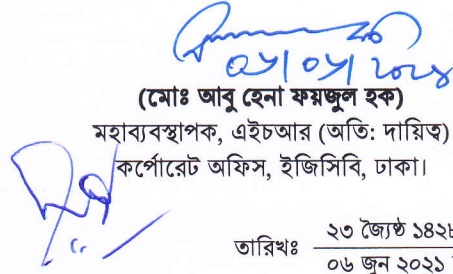 (মোঃ আবু হেনা ফয়জুল হক)
মহাব্যবস্থাপক, এইচআর (অতি: দায়িত্ব)
কর্পোরেট অফিস, ইজিসিবি, ঢাকা।
তারিখঃ ২৩ জ্যৈষ্ঠ ১৪২৮
০৬ জুন ২০২১